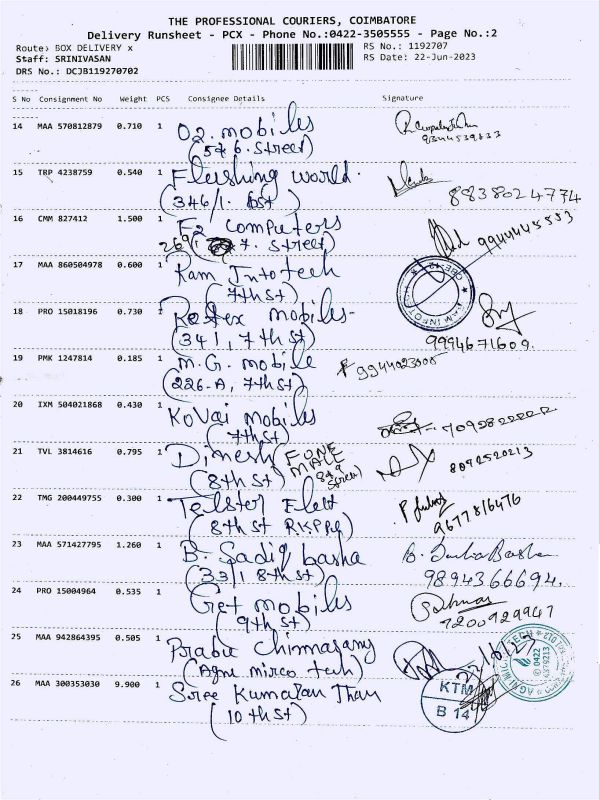 THE PROFESSIONAL COURIERS, COIMBATORE
Delivery Runsheet - PCX - Phone No.:0422-3505555 - Page No.:2
Route: BOX DELIVERY x
RS No.: 1192707
Staff: SRINIVASAN
RS Date: 22-Jun-2023
DRS No.: DCJB119270702
S No Consignment No Weight PCS Consignee Details Signature
14 MAA 570812879 0.710 1 O2. mobiles
(576. Street)
9344539833
15 TRP 4238759 0.540 1 Flushing world.
(346/1. 8st)
8838024774
16 CMM 827412 1.500 1 F2 computers
269/ 7. Street)
9944445553
17 MAA 860504978 0.600 1 Ram Infotech
(7th St)
18 PRO 15018196 0.730 1 mobiles-
(341, 7th St)
9994671609.
19 PMK 1247814 0.185 1 M.G. mobile
(226-A, 7th St)
20 IXM 504021868 0.430 1 KoVai mobiles
(7th St)
21 TVL 3814616 0.795 1 Dinesh FONE MALE
(8th St)
8092520213
22 TMG 200449755 0.300 1
(8th St
9677816476
23 MAA 571427795 1.260 1 B. Sadiq basha
(33/1 8th St)
9894366694.
24 PRO 15004964 0.535 1 Get mobiles
(9th St)
7200929947
25 MAA 942864395 0.505 1 Prabu Chinnasamy
(Agni mirco tech)
26 MAA 300353030 9.900 1 Sree Kumaran Than
(10th St)
KTM
B 14